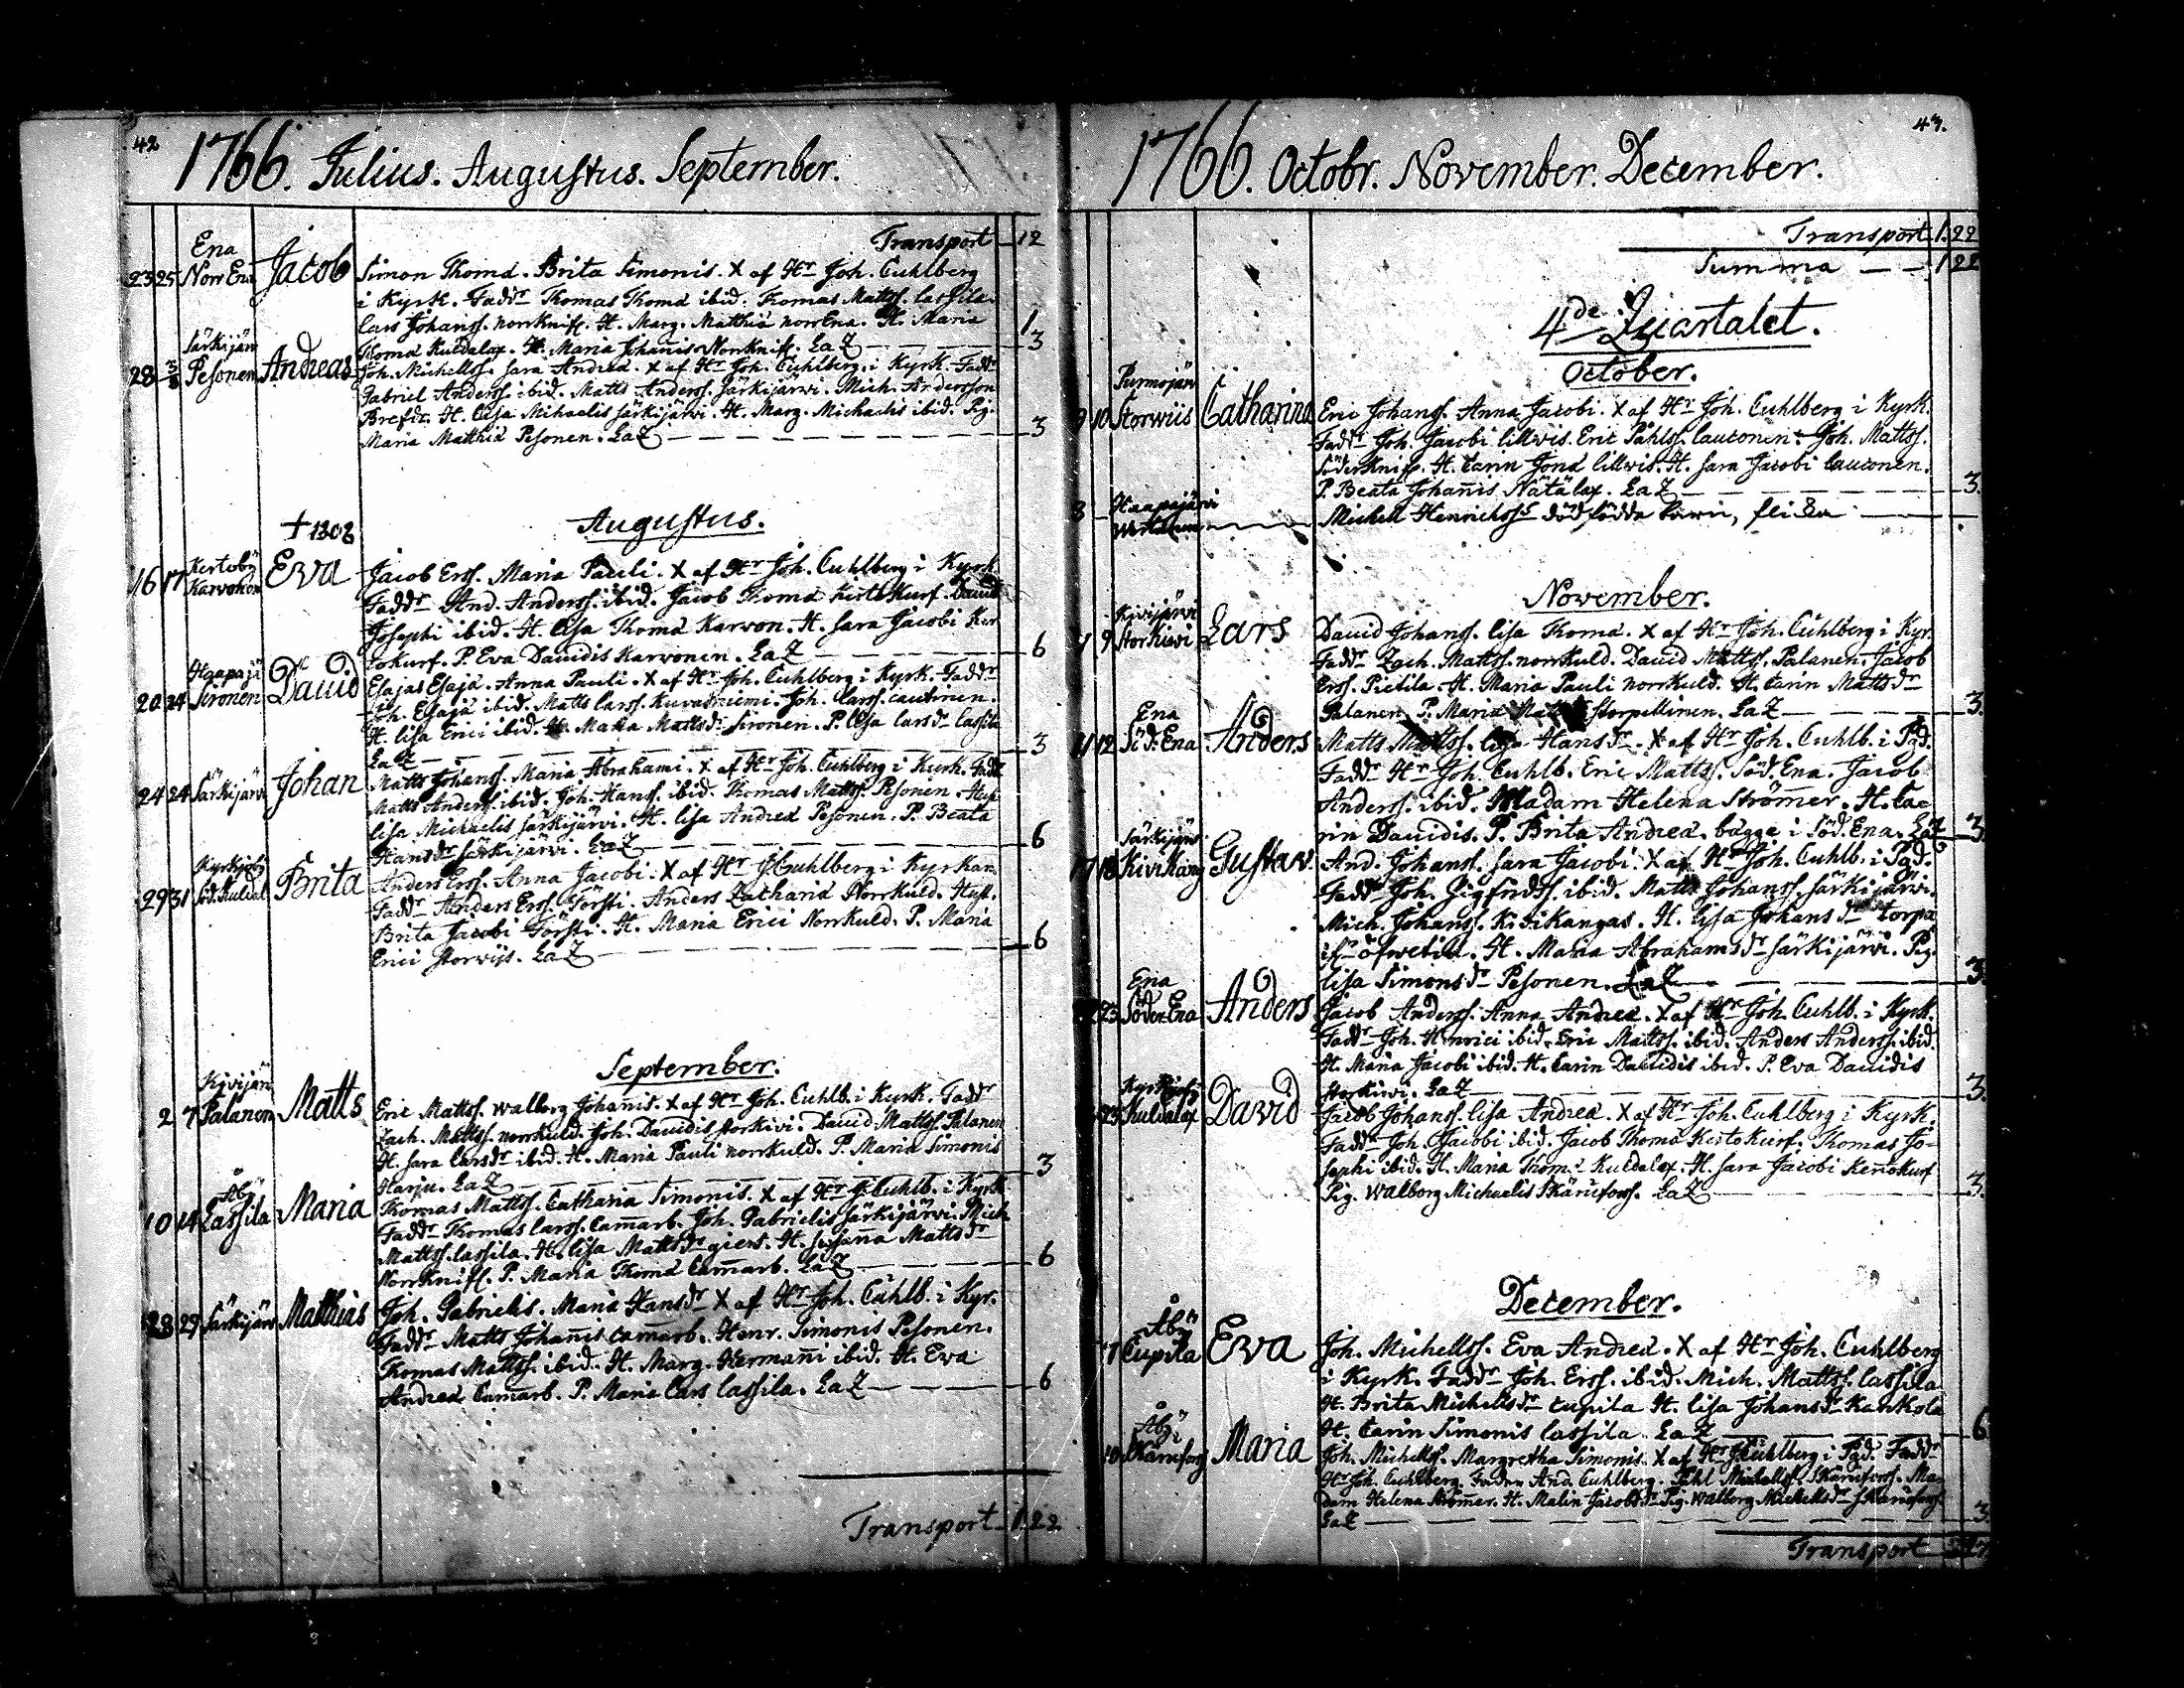 42
1766. Julius. Augustus. September.
Transport 12
Ena
23 25 Norr Ena Jacob Simon Thomæ. Brita Simonis. X af Hr Joh. Cuhlberg
i Kyrk. Faddr Thomas Thomæ ibid. Thomas Mattss. Lassila.
Lars Johanss. norrknif. H. Marg. Matthiæ norrEna. H. Maria 1
Thomæ Kuldalax. H. Maria Johannis Norrknif. LaZ 3
Särkijärv
28 3/8 Pesonen Andreas Joh. Michellss. Sara Andreæ. X af Hr Joh. Cuhlberg i Kyrk. Faddr
Gabriel Anderss. ibid. Matts Anderss. Särkijärvi. Mich. Andersson
H. Lisa Michaelis Särkijärvi. H. Marg. Michaelis ibid. Pig.
Maria Matthiæ Pesonen. LaZ 3
† 1808
Augustus.
16 17 Kertoby Karvonen Eva Jacob Erss. Maria Pauli. X af Hr Joh. Cuhlberg i Kyrk
Faddr And. Anderss. ibid. Jacob Thomæ Kertokurf. David
Josephi ibid. H. Lisa Thomæ Karvon. H. Sara Jacobi Ker
tokurf. P. Eva Davidis Karvonen. LaZ 6
Haapajä
20 24 Sironen David Esajas Esajæ. Anna Pauli. X af Hr Joh. Cuhlberg i Kyrk. Faddr
Joh. Esajæ ibid. Matts Larss. Kuvasniemi. Joh. Larss. Lautonen.
H. Lisa Erici ibid. H. Maria Mattsdr Sironen. P. Lisa Larsdr Lassila
LaZ 3
24 24 Särkijärv Johan Matts Johanss. Maria Abrahami. X af Hr Joh. Cuhlberg i Kyrk. Faddr
Matts Anderss. ibid. Joh. Hanss. ibid. Thomas Mattss. Pesonen. Hust.
Lisa Michaelis Särkijärvi. H. Lisa Andreæ Pesonen. P. Beata
Hansdr Särkijärvi. LaZ 6
29 31 Söd.Kuldal Brita Anders Erss. Anna Jacobi. X af Hr J. Cuhlberg i Kyrkan
Faddr Anders Erss. Förfti. Anders Zachariæ Norrkuld. Hust.
Brita Jacobi Förfti. H. Maria Erici Norrkuld. P. Maria
Erici Storwijs. LaZ 6
September.
Kivijärv
2 7 Palanen Matts Eric Mattss. Walborg Johannis. X af Hr Joh. Cuhlb. i Kyrk. Faddr
Zach. Mattss. norrkuld. Joh. Davidis storkivi. David Mattss. Palanen
H. Sara Larsdr ibid. H. Maria Pauli norrkuld. P. Maria Simonis
Harju. LaZ 3
Åby
10 14 Lassila Maria Thomas Mattss. Catharia Simonis. X af Hr J. Cuhlb. i Kyrk
Faddr Thomas Larss. Camarb. Joh. Gabrielis Särkijärvi. Mich
Mattss. Lassila. H. Lisa Mattsdr giers. H. Susanna Mattsdr
Norrknif. P. Maria Thomæ Camarb. LaZ 6
28 29 Särkijärv Matthias Joh. Gabrielis. Maria Hansdr X af Hr Joh. Cuhlb. i Kyr.
Faddr Matts Johannis Camarb. Henr. Simonis Pesonen.
Thomas Mattss. ibid. H. Marg. Hermanni ibid. H. Eva
Andreæ Camarb. P. Maria Lars Lassila. LaZ 6
Transport 1. 22
43.
1766. Octobr. November. December.
Transport 1. 22
Summa 1 22
4de Quartalet.
October.
Purmojärv
9 10 Storwiis Catharina Eric Johanss. Anna Jacobi. X af Hr Joh. Cuhlberg i Kyrk.
Faddr Joh. Jacobi Lillwis. Eric Påhlss. Lautonen. Joh. Mattss.
Söderknif. H. Carin Jonæ Lillwis. H. Sara Jacobi Lautonen.
P. Beata Johannis Nätälax. LaZ 3.
8 Haapajärvi Michell Henrichss. dödfödda barn, flicka
November.
Kivijärvi
9 Storkivi Lars David Johanss. Lisa Thomæ. X af Hr Joh. Cuhlberg i Kyr.
Faddr Zach. Mattss. norrkuld. David Mattss. Palanen. Jacob
Erss. Pietila. H. Maria Pauli norrkuld. H. Carin Mattsdr
Palanen. P. Maria Storpellinen. LaZ 3.
Ena
11 12 Söd. Ena Anders Matts Mattss. Lisa Hansdr. X af Hr Joh. Cuhlb. i Päd.
Faddr Hr Joh. Cuhlb. Eric Mattss. Söd. Ena. Jacob
Anderss. ibid. Madam Helena Strömer. H. Ca-
rin Davidis. P. Brita Andreæ. bägge i Söd. Ena. LaZ 3.
Särkijärv
17 18 Kivikang Gustav. And. Johanss. Sara Jacobi. X af Hr Joh. Cuhlb. i Päd.
Faddr Joh. Sigfridss. ibid. Matts Johanss. Särkijärvi.
Mich. Johanss. Kivikangas. H. Lisa Johansdr torpa
ifr öfwetila. H. Maria Abrahamsdr Särkijärvi. Pig.
Lisa Simonsdr Pesonen. LaZ 3.
Ena
23 Söder Ena Anders Jacob Anderss. Anna Andreæ. X af Hr Joh. Cuhlb. i Kyrk.
Faddr Joh. Henrici ibid. Eric Mattss. ibid. Anders Anderss. ibid.
H. Maria Jacobi ibid. H. Carin Davidis ibid. P. Eva Davidis
Storkivi. LaZ 3.
23 Kuldalax David Jacob Johanss. Lisa Andreæ. X af Hr Joh. Cuhlberg i Kyrk.
Faddr Joh. Jacobi ibid. Jacob Thomæ Kertokurf. Thomas Jo-
sephi ibid. H. Maria Thomæ Kuldalax. H. Sara Jacobi Kertokurf
Pig. Walborg Michaelis Skärufors. LaZ 3.
December.
Åby
7 Cupila Eva Joh. Michellss. Eva Andreæ. X af Hr Joh. Cuhlberg
i Kyrk. Faddr Joh. Erss. ibid. Mich. Mattss. Lassila
H. Brita Michellsdr Cupila H. Lisa Johansdr Kankola
H. Carin Simonis Lassila. LaZ 6
Åby
10 Skärufors Maria Joh. Michellss. Margretha Simonis. X af Hr J. Cuhlberg i Päd. Faddr
Hr Joh. Cuhlberg. And. Cuhlberg. Påhl Michellss. Skärufors. Ma-
dam Helena Strömer. H. Malin Jacobsdr Pig. Walborg Michellsdr Skärufors.
LaZ 3.
Transport